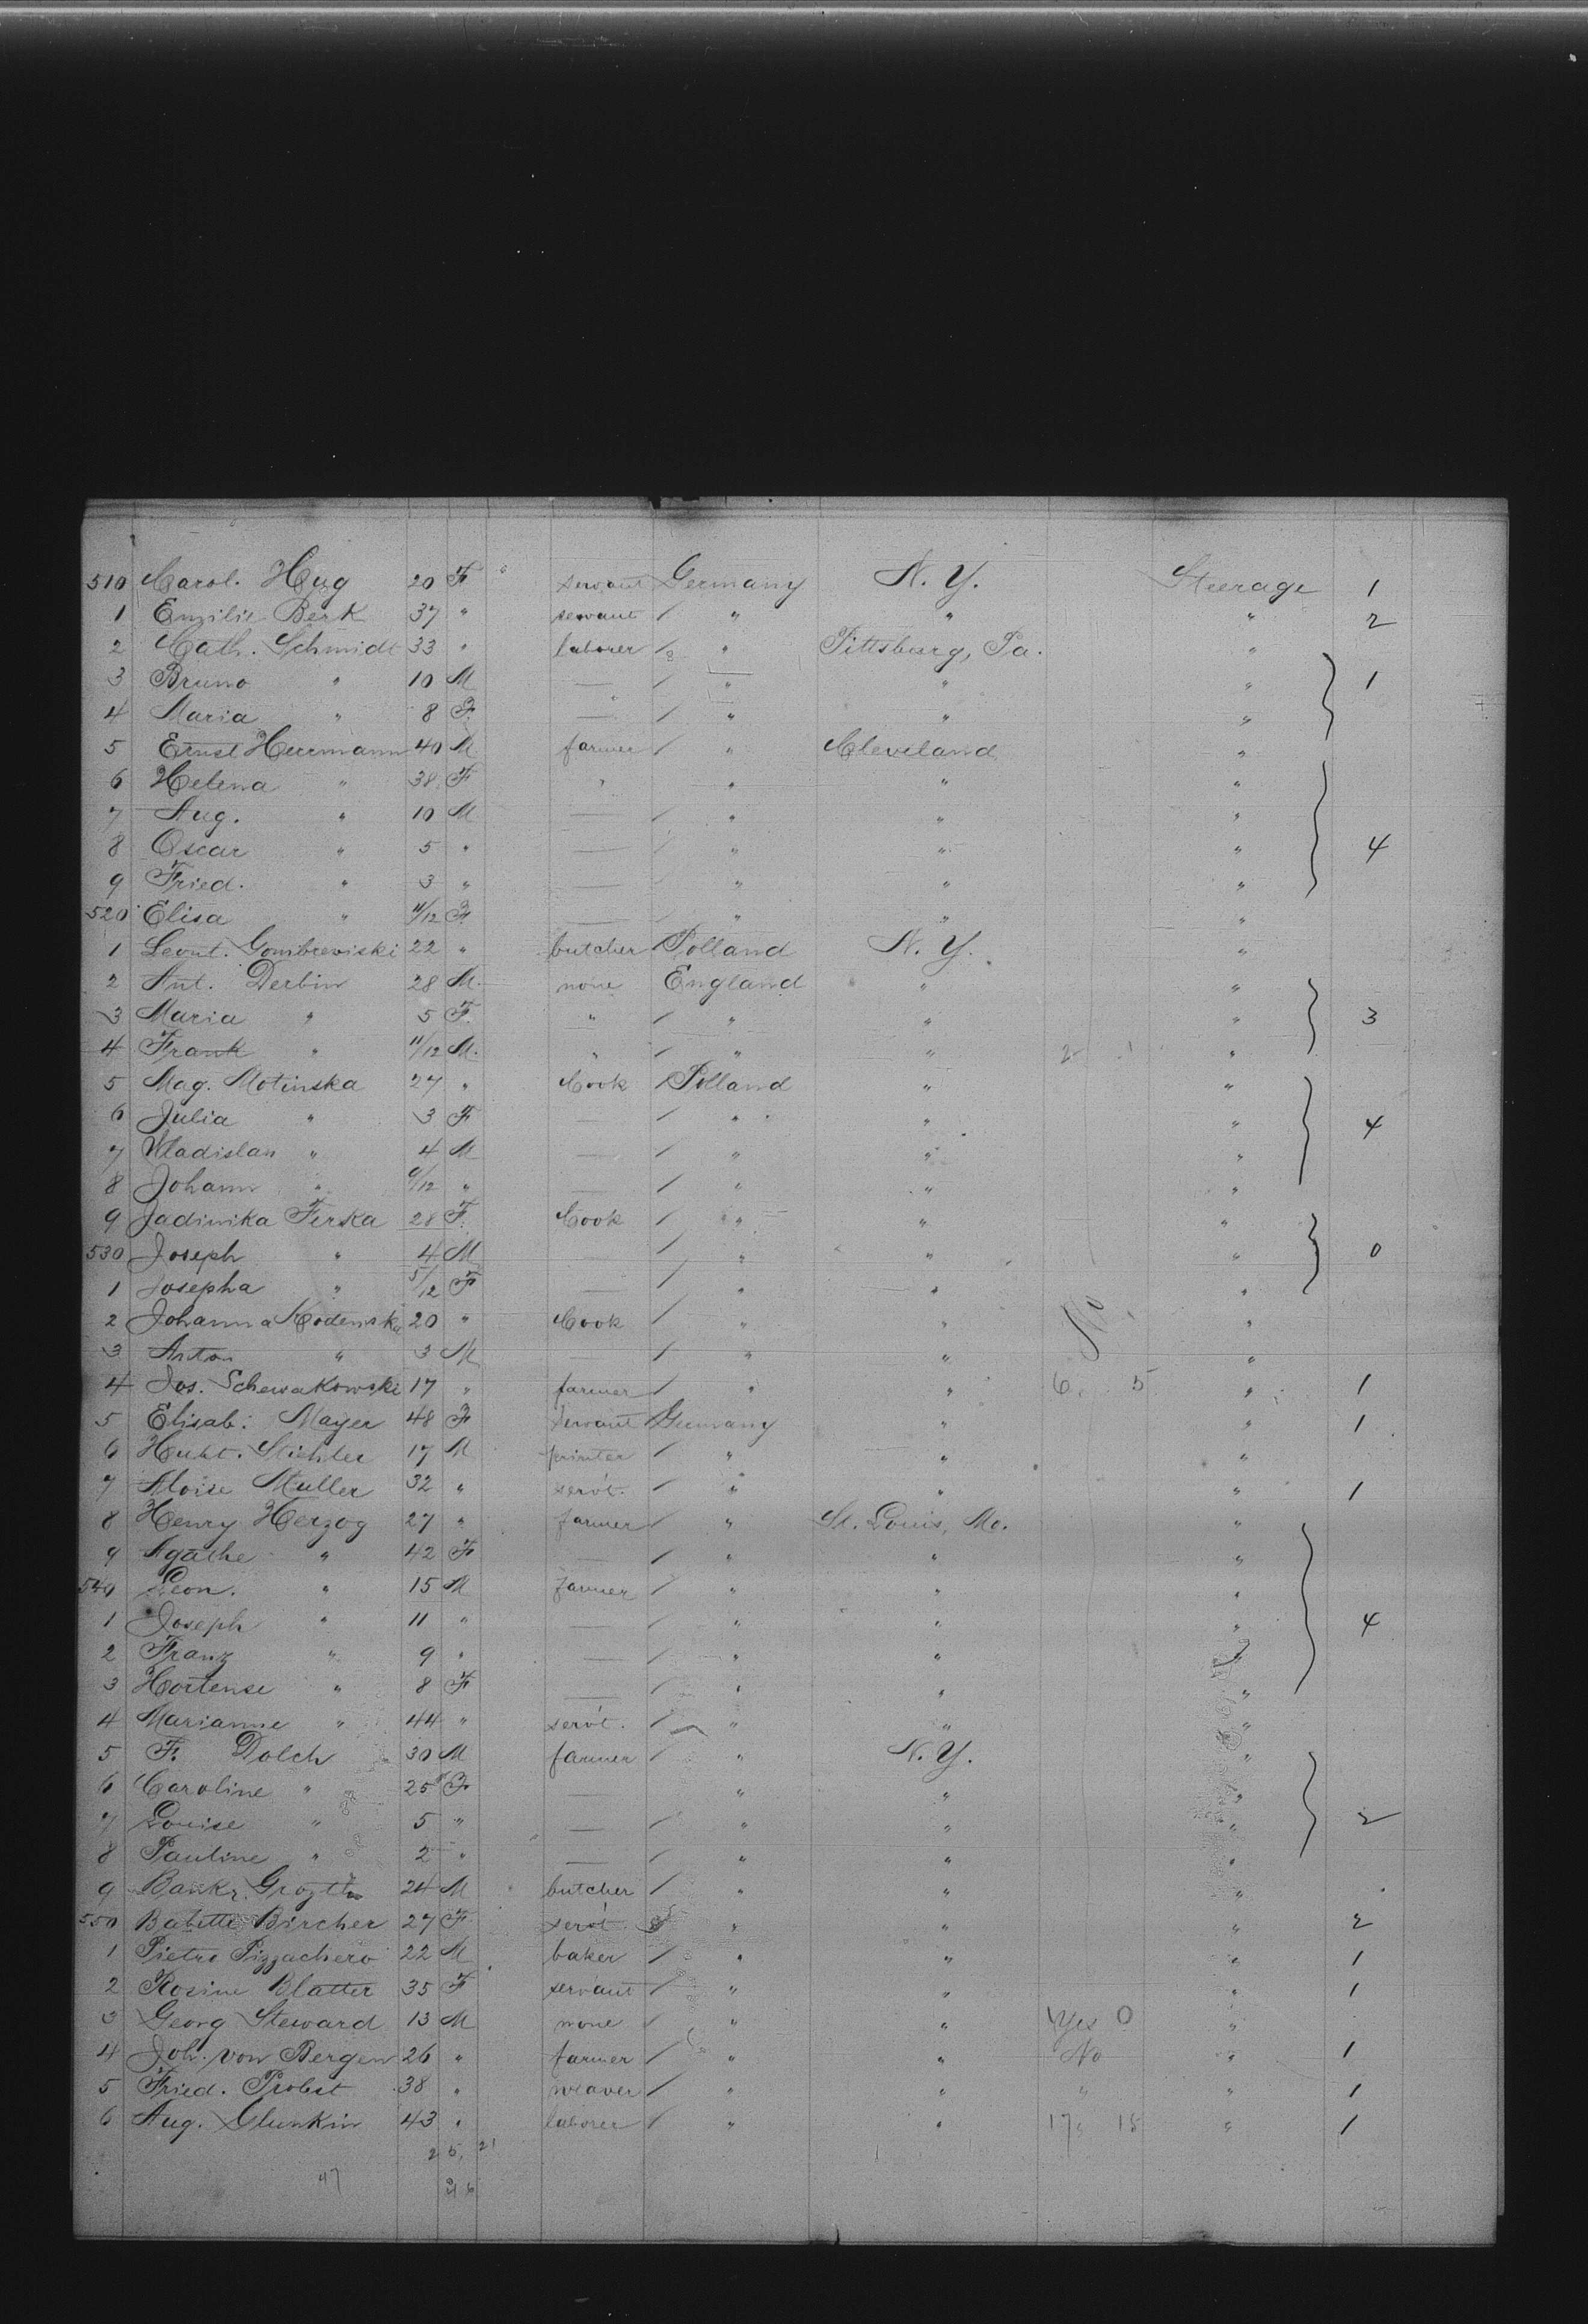 510 Carol. Hug 20 F " servant Germany N. Y. Steerage 1
1 Emilie Berk 37 " servant / " " " 2
2 Cath. Schmidt 33 " laborer / " Pittsburg, Pa. "
3 Bruno " 10 M — / " " " 1
4 Maria " 8 F. — / " " "
5 Ernst Herrmann 40 M. farmer / " Cleveland "
6 Helena " 38 F " " " "
7 Aug. " 10 M — / " " "
8 Oscar " 5 " — / " " " 4
9 Fried. " 3 " — / " " "
520 Elisa " 11/12 F. — / " " "
1 Leont. Gombrewiski 22 " butcher Polland N. Y. "
2 Ant. Derbin 28 M. none England " "
3 Maria " 5 F. " / " " " 3
4 Frank " 11/12 M. " / " " "
5 Mag. Motinska 27 " Cook / Polland " "
6 Julia " 3 F — / " " " 4
7 Wladislau " 4 M — / " " "
8 Johann " /12 " — / " " "
9 Jadinika Ferska 28 F. Cook / " " "
530 Joseph " 4 M / " " " 0
1 Josepha " 5/12 F — / " " "
2 Johanna Kodenska 20 " Cook / " " "
3 Anton " 3 M — / " " No "
4 Jos. Schewakowski 17 " farmer / " " 6 5 " 1
5 Elisab. Mayer 48 F servant Germany " " 1
6 17 M printer / " " "
7 Aloise Muller 32 " serv't. / " " " 1
8 Henry Herzog 27 " farmer / " St. Louis, Mo. "
9 Agathe " 42 F — / " " "
540 Leon. " 15 M farmer / " " "
1 Joseph " 11 " — / " " " 4
2 Franz " 9 " — / " " "
3 Hortense " 8 F — / " " "
4 Marianne " 44 " serv't. / " " "
5 F. Dolch 30 M farmer / " N. Y. "
6 Caroline " 25 F — " " "
7 Louise " 5 " — / " " " 2
8 Pauline " 2 " — / " " "
9 24 M butcher / " " "
550 Babette Bircher 27 F serv't " " " 2
1 Pietro Pizzachero 22 M baker / " " " 1
2 Rosine Blatter 35 F servant / " " " 1
3 Georg Steward 13 M none / " " Yes 0 "
4 Joh. von Bergen 26 " farmer / " " No " 1
5 Fried. Probst 38 " weaver / " " " " 1
6 Aug. Glunkin 43 " laborer / " " 17 15 " 1
47